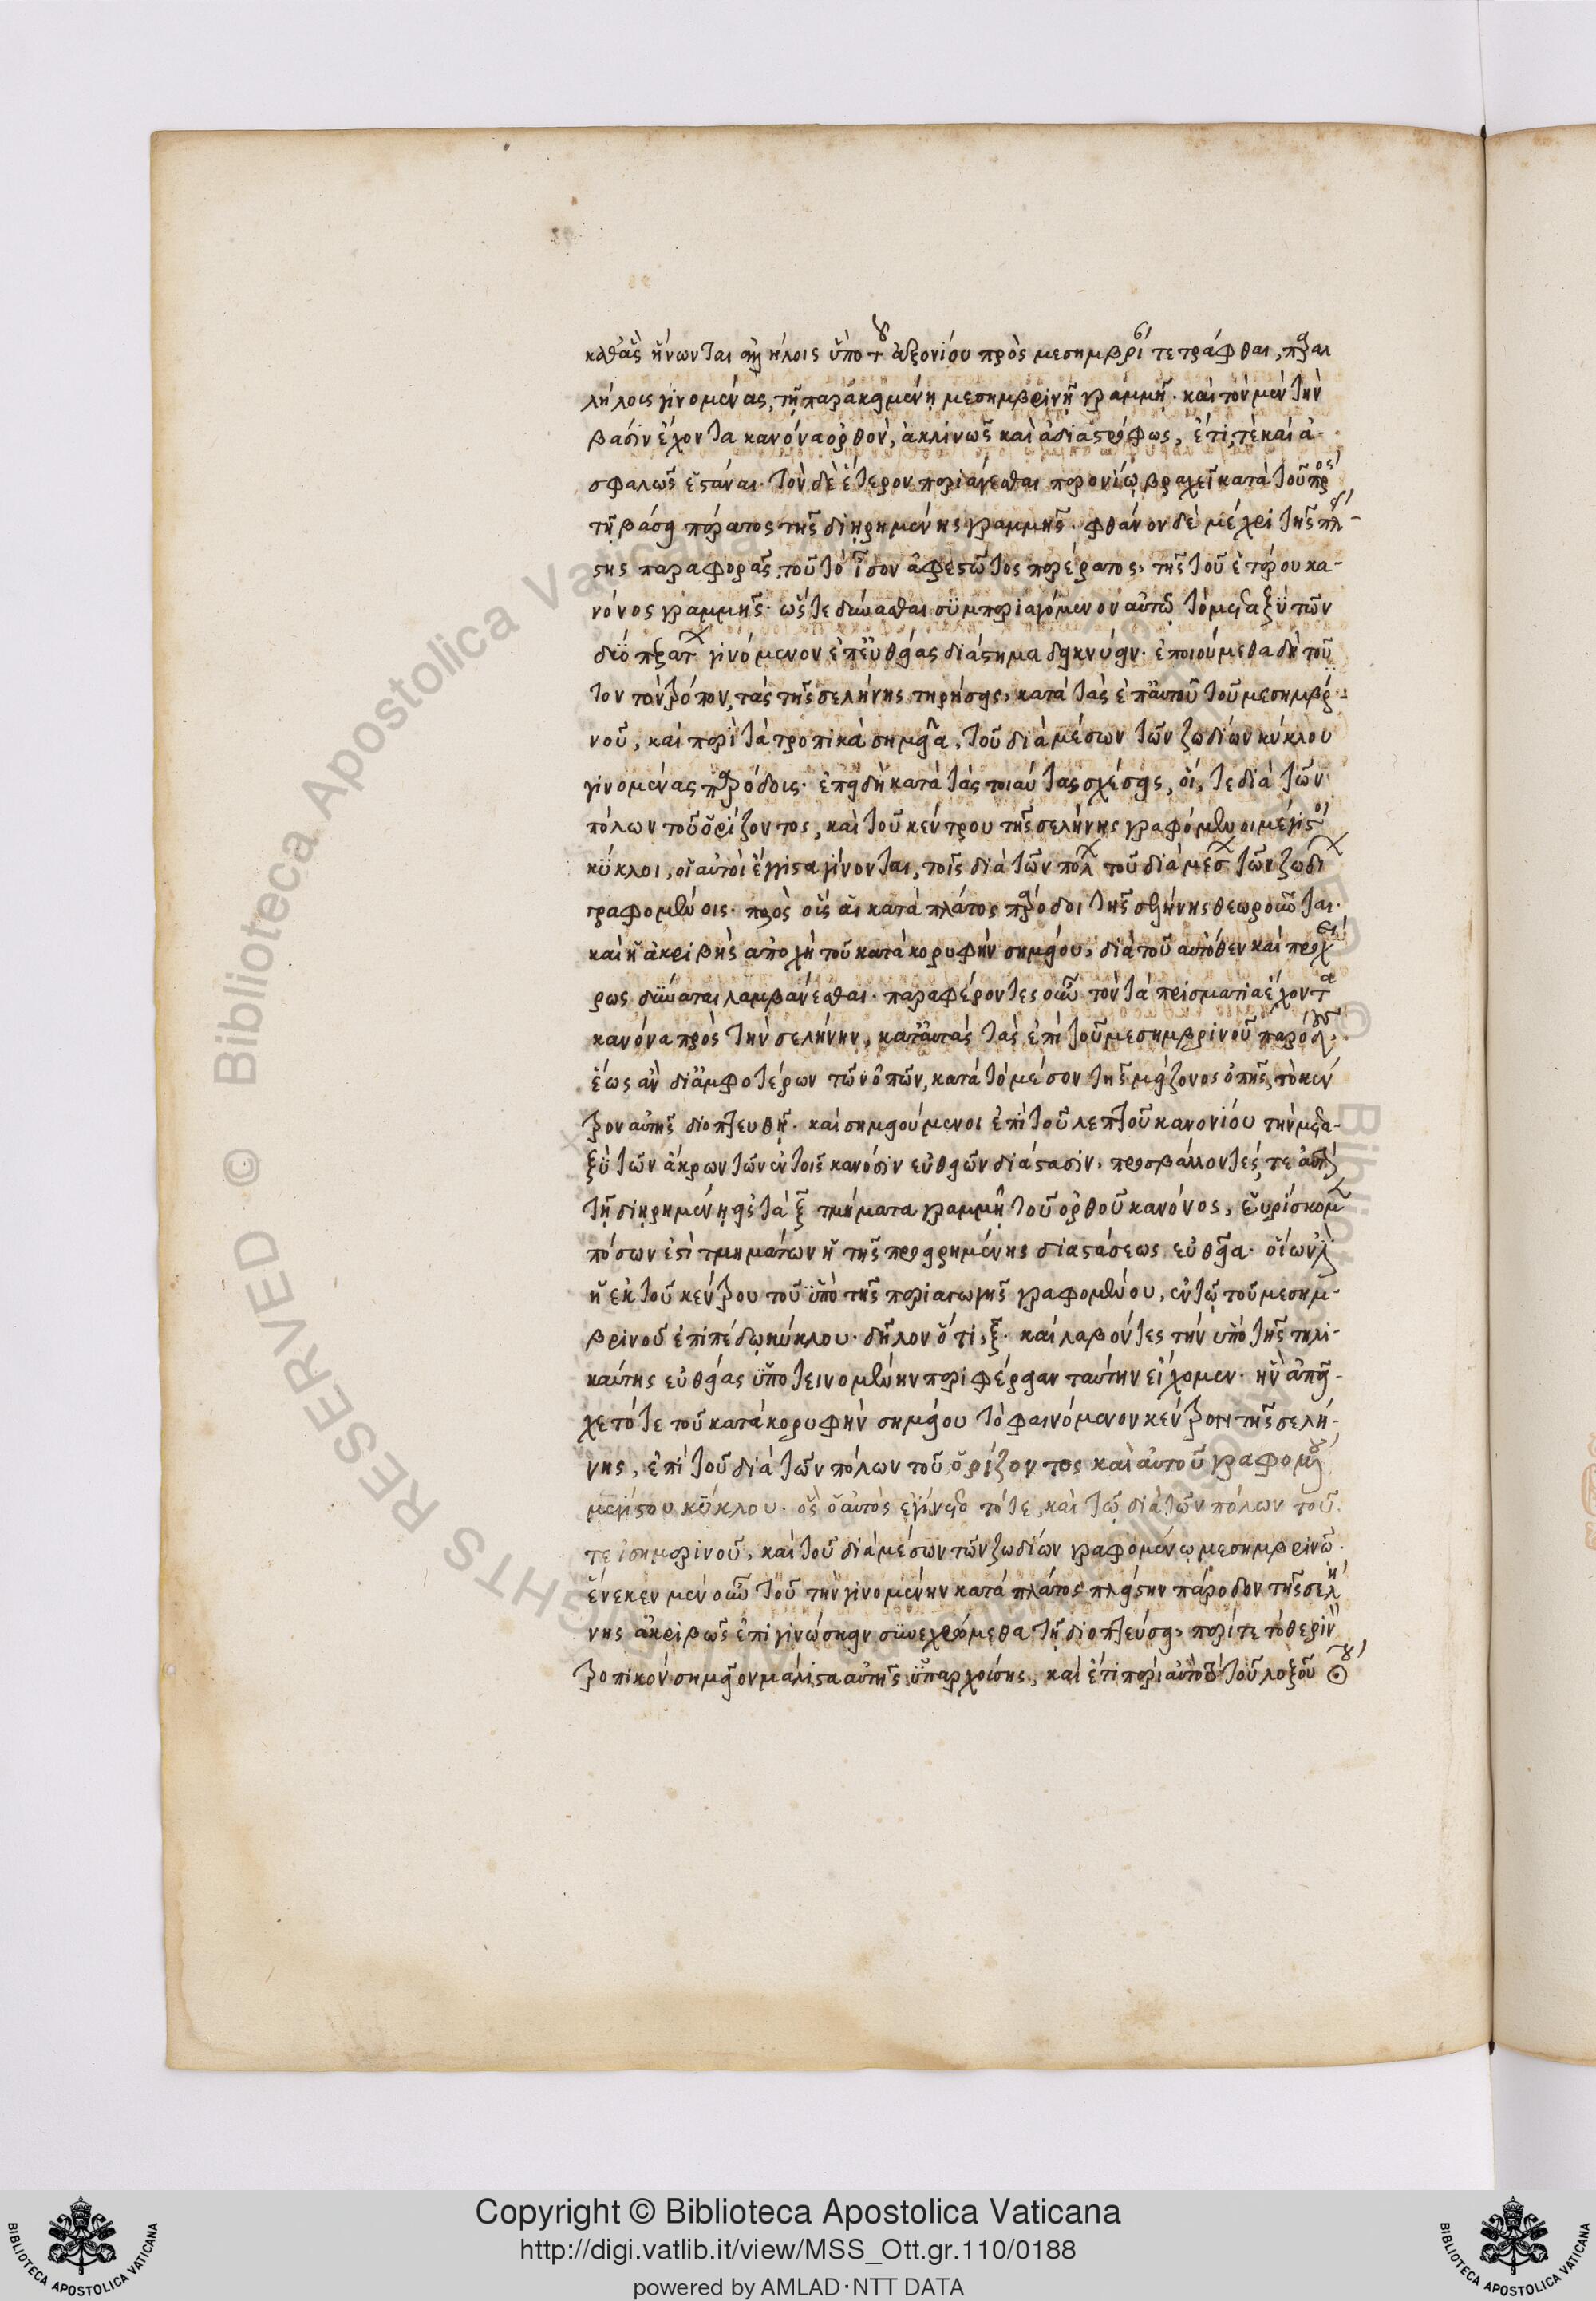 καθ' ἃς ἥνωνται ἀλλήλοις ὑπὸ τοῦ ἀξονίου πρὸς μεσημβρί τετράφθαι, παραλ
λήλοις γινομένας, τῇ παρακειμένῃ μεσημβρινῇ γραμμῇ· καὶ τὸν μὲν τὴν
βάσιν ἔχοντα κανόνα ὀρθὸν, ἀκλινῶς καὶ ἀδιαστρόφως, ἔτι, τὲ καὶ ἀ-
σφαλῶς ἑστάναι· τὸν δὲ ἕτερον περιάγεσθαι περονίῳ βραχεῖ κατὰ τοῦ πρὸς
τῇ βάσει πέρατος τῆς διῃρημένης γραμμῆς· φθάνον δὲ μέχρι τῆς πλεί-
στης παραφορᾶς, τοῦ τὸ ἴσον ἀφεστῶτος πέρατος, τῆς τοῦ ἑτέρου κα-
νόνος γραμμῆς· ὥστε δύνασθαι συμπεριαγόμενον αὐτῷ τὸ μεταξὺ τῶν
δύο περάτων γινόμενον ἐπ' εὐθείας διάστημα δεικνύειν· ἐποιούμεθα δὴ τοῦ
τον τὸν τρόπον, τὰς τῆς σελήνης τηρήσεις, κατὰ τὰς ἐπ' αὐτοῦ τοῦ μεσημβρι-
νοῦ, καὶ περὶ τὰ τροπικὰ σημεῖα, τοῦ διὰ μέσων τῶν ζωδίων κύκλου
γινομένας παρόδοις· ἐπειδὴ κατὰ τὰς τοιαύτας σχέσεις, οἵ, τε διὰ τῶν
πόλων τοῦ ὁρίζοντος, καὶ τοῦ κέντρου τῆς σελήνης γραφόμενοι μέγιστοι
κύκλοι, οἱ αὐτοὶ ἔγγιστα γίνονται, τοῖς διὰ τῶν πόλων τοῦ διὰ μέσων τῶν ζωδίων
γραφομένοις· πρὸς οἷς αἱ κατὰ πλάτος πάροδοι τῆς σελήνης θεωροῦνται·
καὶ ἡ ἀκριβὴς ἀποχὴ τοῦ κατὰ κορυφὴν σημείου, διὰ τοῦ αὐτόθεν καὶ προχεί
ρως δύναται λαμβάνεσθαι· παραφέροντες οὖν τὸν τὰ πρισμάτια ἔχοντα
κανόνα πρὸς τὴν σελήνην, κατ' αὐτὰς τὰς ἐπὶ τοῦ μεσημβρινοῦ παρόδους,
ἕως ἂν δι' ἀμφοτέρων τῶν ὀπῶν, κατὰ τὸ μέσον τῆς μείζονος ὀπῆς, τὸ κέν
τρον αὐτῆς διοπτευθῇ· καὶ σημειούμενοι ἐπὶ τοῦ λεπτοῦ κανονίου τὴν μετα-
ξὺ τῶν ἄκρων τῶν ἐν τοῖς κανόσιν εὐθειῶν διάστασιν, προσβάλλοντές, τε αὐτὴν
τῇ διῃρημένῃ εἰς τὰ ξ τμήματα γραμμῇ τοῦ ὀρθοῦ κανόνος, εὑρίσκομεν
πόσων ἐστὶ τμημάτων ἡ τῆς προειρημένης διαστάσεως εὐθεῖα· οἵων ἐστὶν
ἡ ἐκ τοῦ κέντρου τοῦ ὑπὸ τῆς περιαγωγῆς γραφομένου, ἐν τῷ τοῦ μεσημ-
βρινοῦ ἐπιπέδῳ κύκλου· δῆλον ὅτι, ξ· καὶ λαβόντες τὴν ὑπὸ τῆς τηλι-
καύτης εὐθείας ὑποτεινομένην περιφέρειαν ταύτην εἴχομεν· ἣν ἀπεῖ-
χε τότε τοῦ κατὰ κορυφὴν σημείου τὸ φαινόμενον κέντρον τῆς σελή-
νης, ἐπὶ τοῦ διὰ τῶν πόλων τοῦ ὁρίζοντος καὶ αὐτοῦ γραφομένου
μεγίστου κύκλου· ὃς ὁ αὐτὸς ἐγίνετο τότε, καὶ τῷ διὰ τῶν πόλων τοῦ
τε ἰσημερινοῦ, καὶ τοῦ διὰ μέσων τῶν ζωδίων γραφομένῳ μεσημβρινῷ·
ἕνεκεν μὲν οὖν τοῦ τὴν γινομένην κατὰ πλάτος πλείστην πάροδον τῆς σελή
νης ἀκριβῶς ἐπιγινώσκειν συνεχρώμεθα τῇ διοπτεύσει, περί τε τὸ θερινὸν
τροπικὸν σημεῖον μάλιστα αὐτῆς ὑπαρχούσης, καὶ ἔτι περὶ αὐτὸ τοῦ λοξοῦ ☉
Copyright © Biblioteca Apostolica Vaticana
http://digi.vatlib.it/view/MSS_Ott.gr.110/0188
powered by AMLAD·NTT DATA